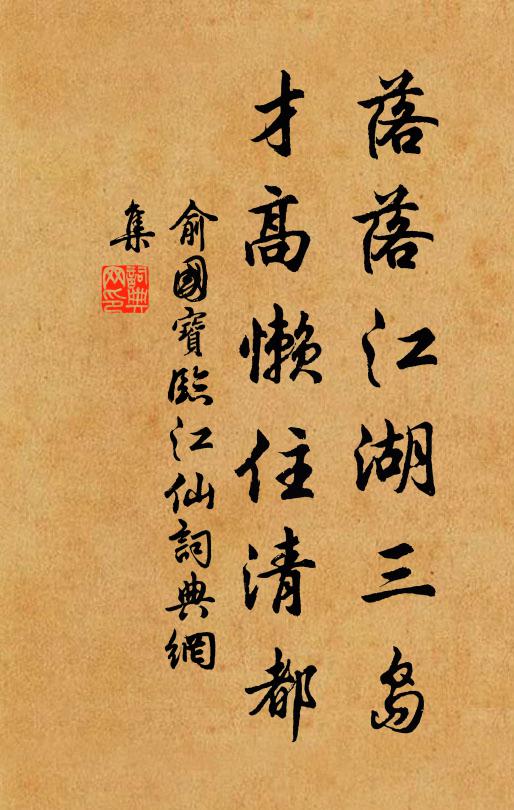 落落江湖三島
才高懶住清都
俞國寶臨江仙詞典網
集
詞典
网印